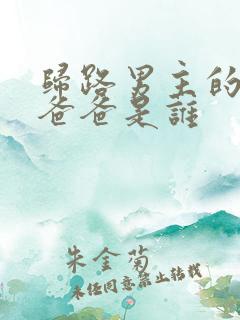 歸路男主的
爸爸是誰
朱金菊
未經同意禁止轉載